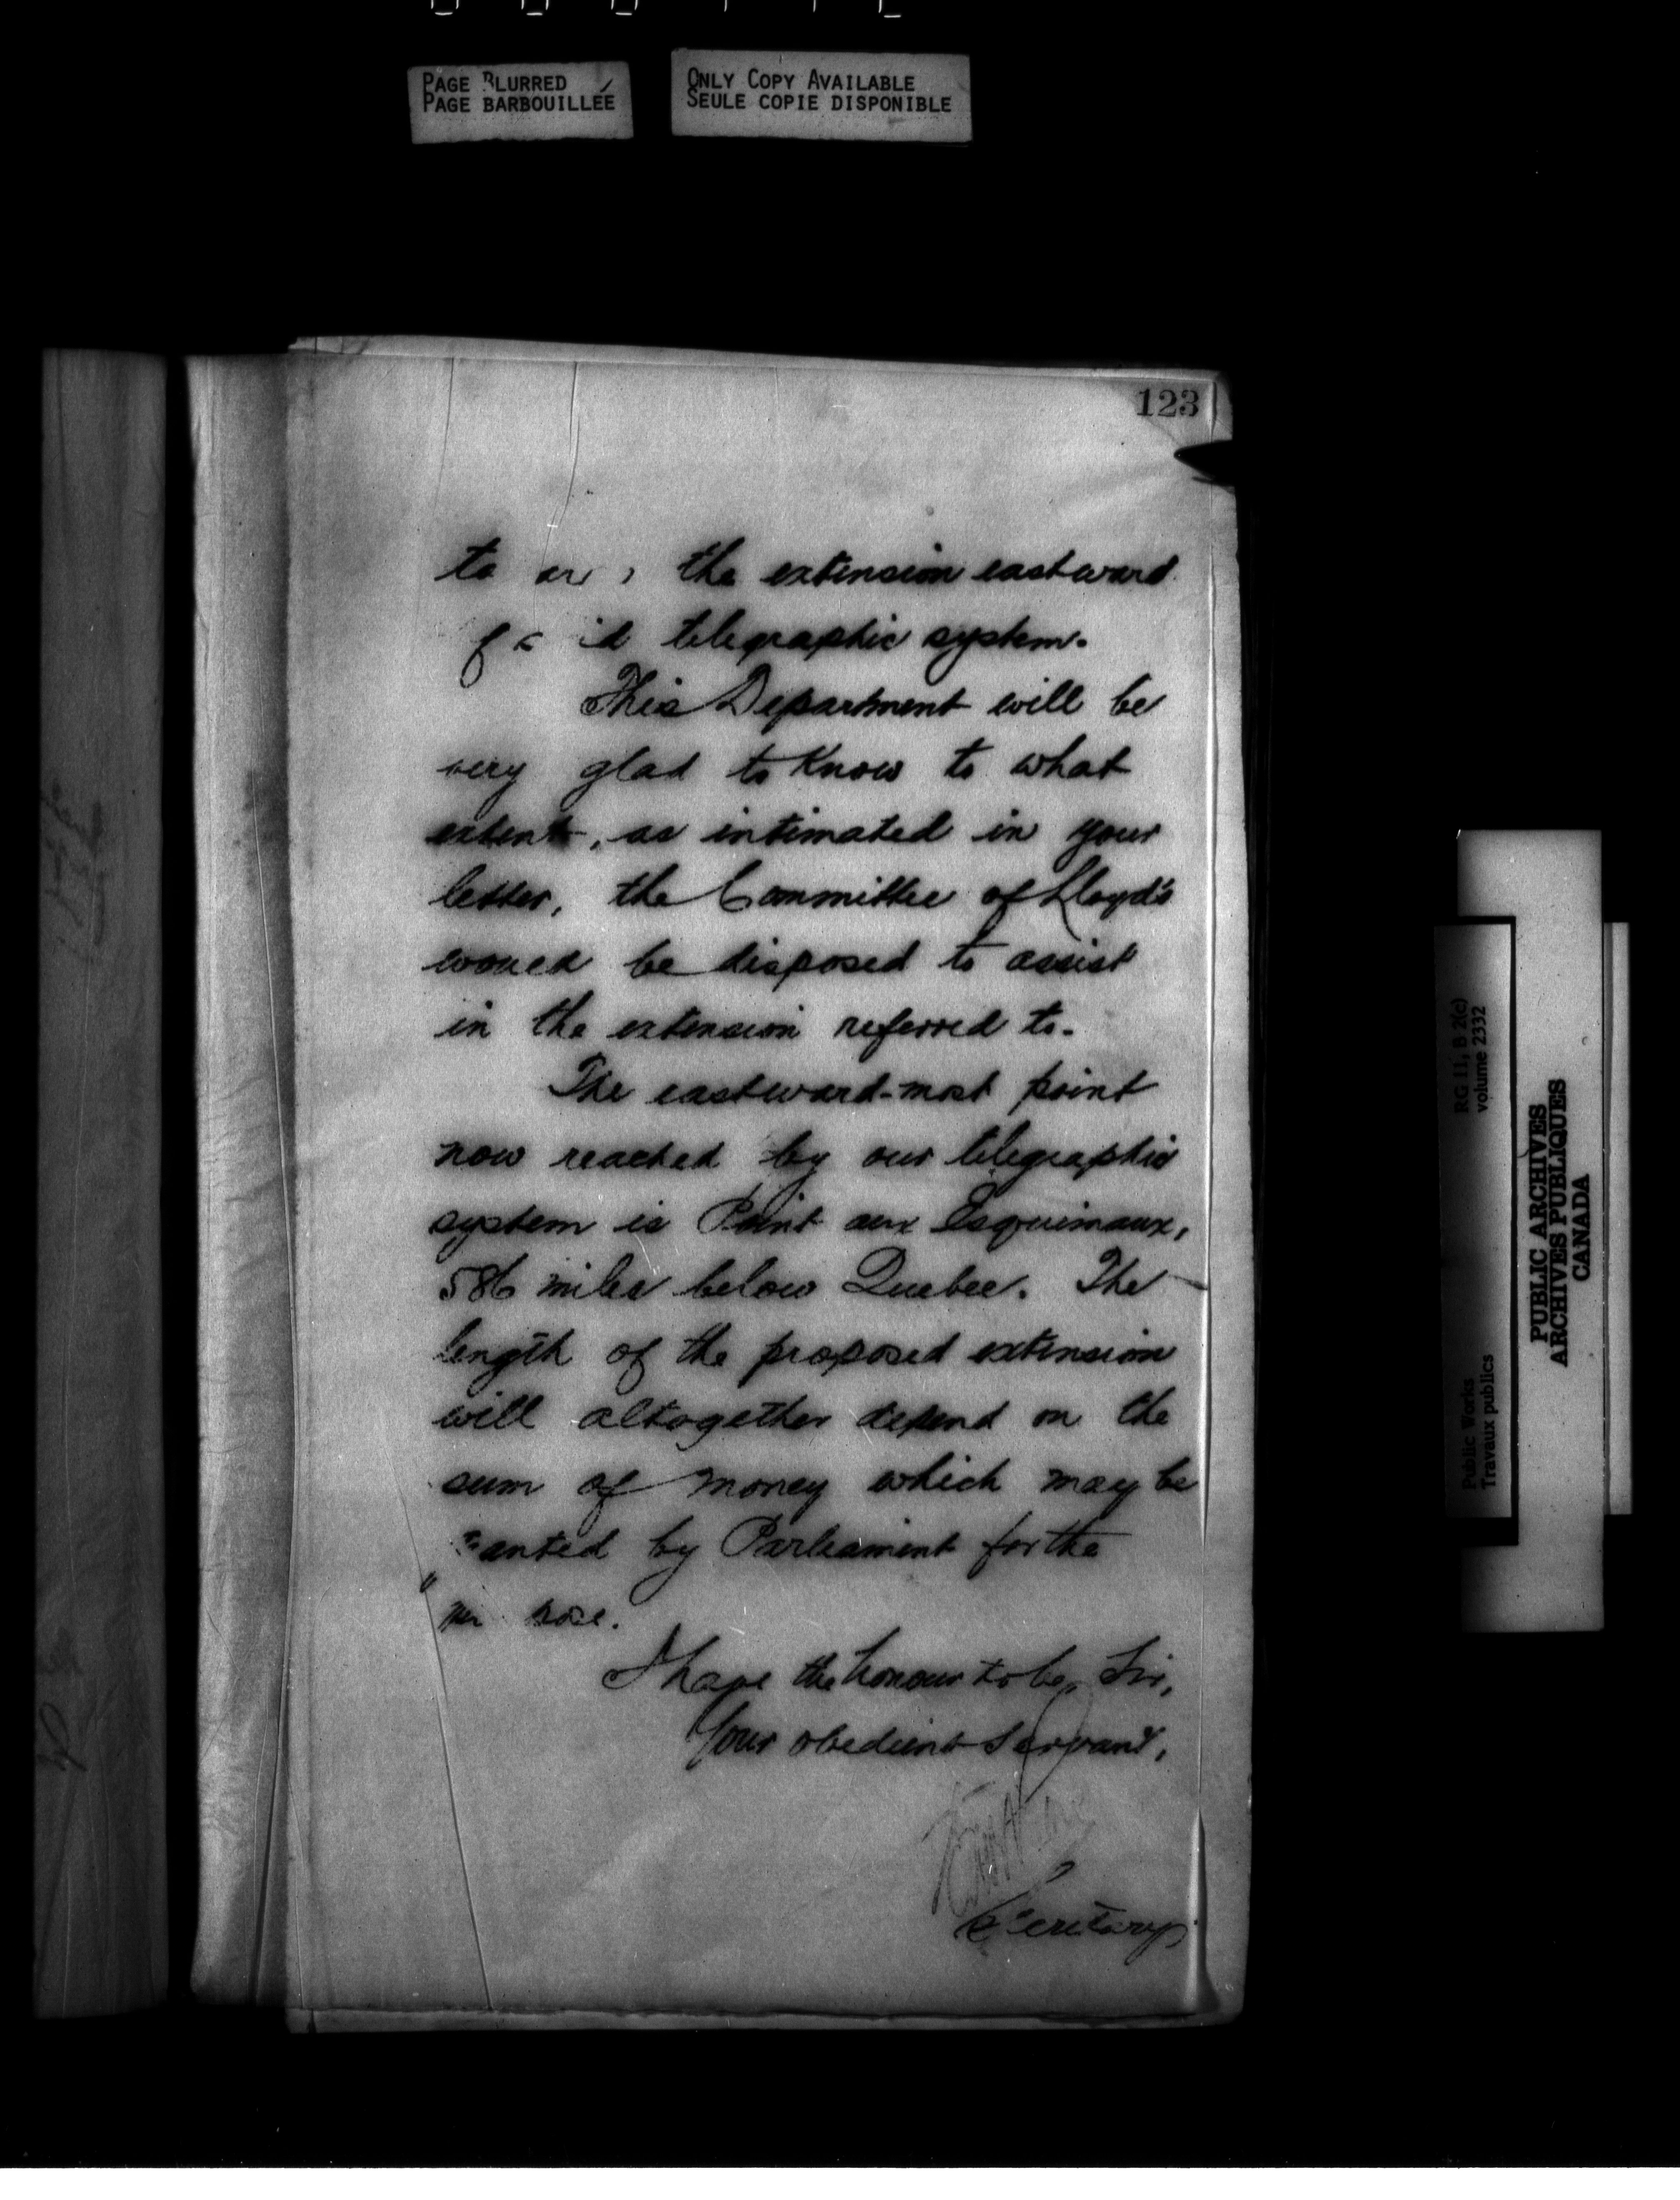 PAGE BLURRED
PAGE BARBOUILLÉE
ONLY COPY AVAILABLE
SEULE COPIE DISPONIBLE
123
to the extension eastward
telegraphic system.
This Department will be
very glad to Know to what
extent, as intimated in your
letter, the Committee of Lloyd's
would be disposed to assist
in the extension referred to.
The eastward-most point
now reached by our telegraphic
system is Point aux Esquimaux,
586 miles below Quebec. The
length of the proposed extension
will altogether depend on the
sum of money which may be
granted by Parliament for the
purpose.
I have the honour to be, Sir,
Your obedient Servant,
Secretary
RG 11, B 2(e)
volume 2332
Public Works
Travaux publics
PUBLIC ARCHIVES
ARCHIVES PUBLIQUES
CANADA